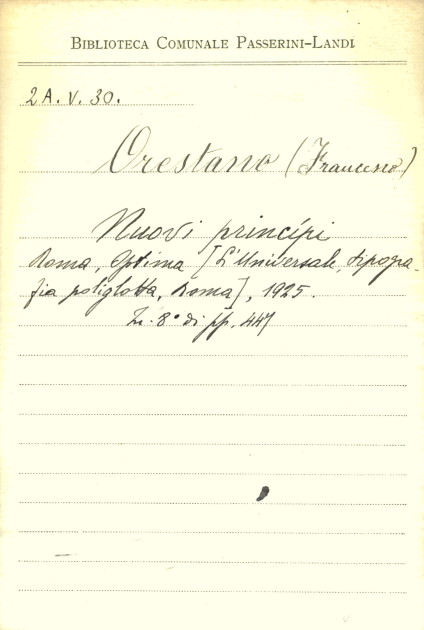 BIBLIOTECA COMUNALE PASSERINI-LANDI
2A. V. 30.
Orestano (Francesco)
Nuovi princípi
Roma, Optima [L'Universale, tipogra-
fia poliglotta, Roma], 1925.
In-8° di pp. 447